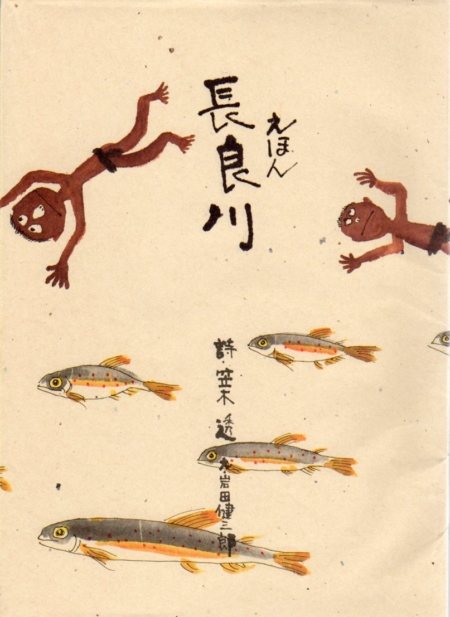 えほん
長良川
詩・笠木 透
え・岩田健三郎